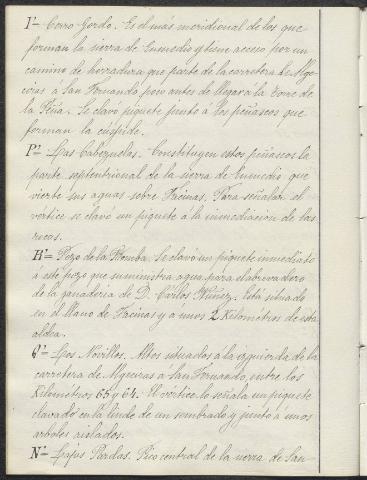 I'- Cerro Gordo. Es el más meridional de los que
forman la sierra de Enmedio y tiene acceso por un
camino de herradura que parte de la carretera de Alge-
ciras á San Fernando poco antes de llegar á la Torre de
la Peña. Se clavó piquete junto á los peñascos que
forman la cúspide.
P'- Las Cabezuelas. Constituyen estos peñascos la
parte septentrional de la sierra de Enmedio que
vierte sus aguas sobre Facinas. Para señalar el
vórtice se clavó un piquete á la inmediación de las
rocas.
H'= Pozo de la Romba. Se clavó un piquete inmediato
á este pozo que suministra agua para el abrevadero
de la ganadería de D. Cárlos Núñez. Está situado
en el llano de Facinas y a unos 2 Kilómetros de esta
aldea.
Q'- Los Novillos. Altos situados á la izquierda de la
carretera de Algeciras á San Fernando, entre los
Kilómetros 65 y 64. El vórtice lo señala un piquete
clavado en la linde de un sembrado y junto á unos
arboles aislados.
N'- Lajas Pardas. Pico central de la sierra de San-